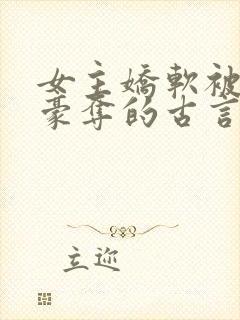 女主嬌軟被
豪奪的古言
立迩